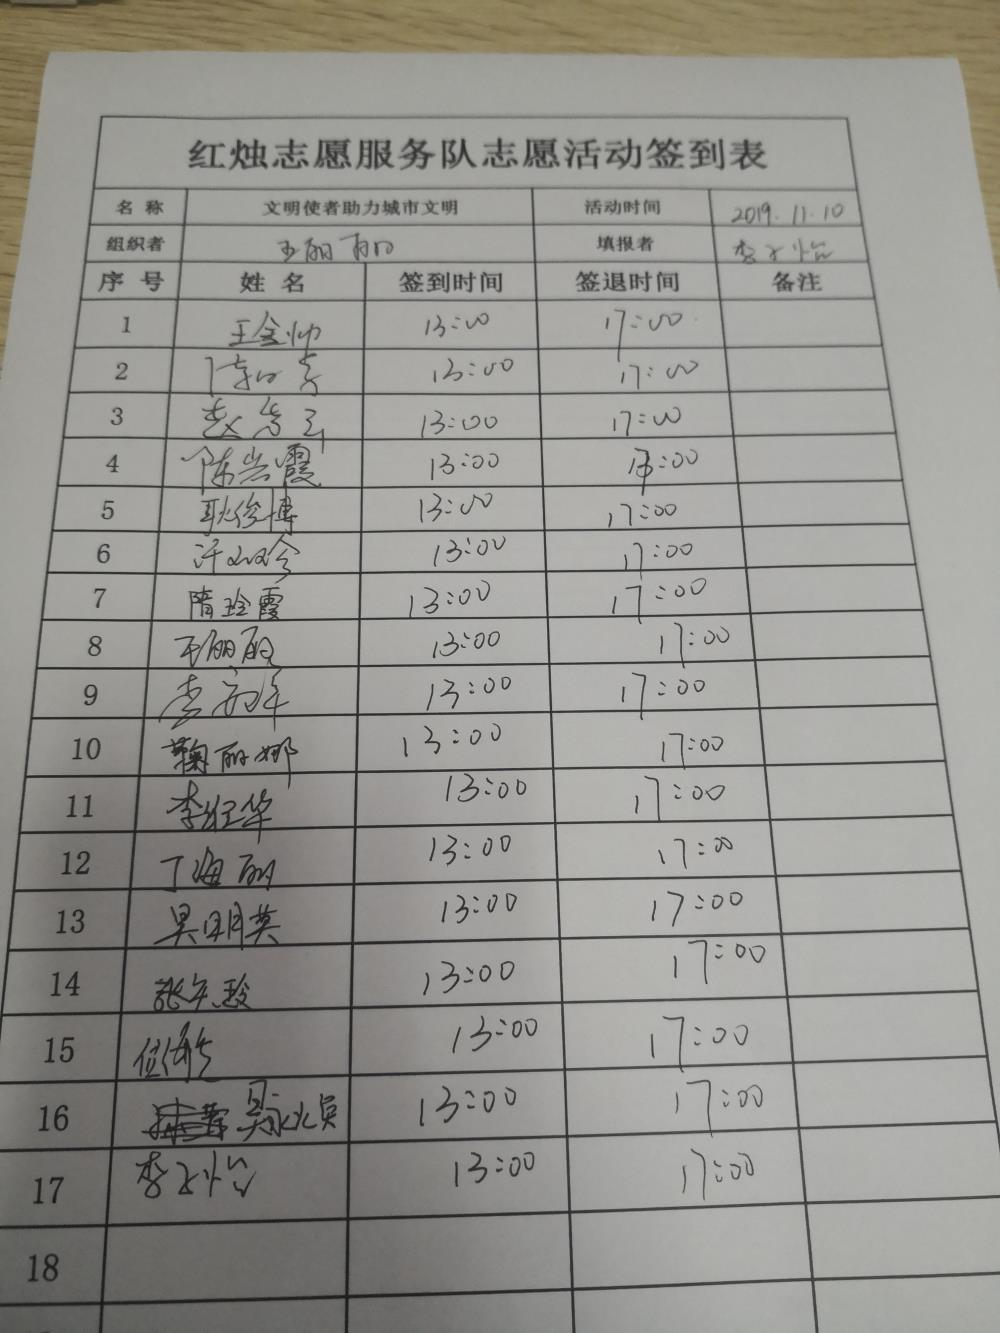 红烛志愿服务队志愿活动签到表
名 称 文明使者助力城市文明 活动时间 2019.11.10
组织者 王丽丽 填报者 李子怡
序 号 姓 名 签到时间 签退时间 备注
1 王金帅 13:00 17:00
2 13:00 17:00
3 赵 13:00 17:00
4 陈兴霞 13:00 :00
5 耿俊博 13:00 17:00
6 13:00 17:00
7 隋玲霞 13:00 17:00
8 王丽丽 13:00 17:00
9 李 13:00 17:00
10 鞠丽娜 13:00 17:00
11 李红华 13:00 17:00
12 丁海丽 13:00 17:00
13 吴明英 13:00 17:00
14 张 13:00 17:00
15 位 13:00 17:00
16 吴 13:00 17:00
17 李子怡 13:00 17:00
18